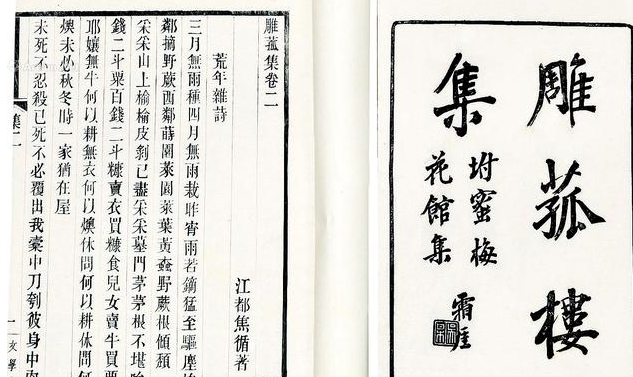 雕菰樓
集
坿蜜梅
花館集
霜厓
雕菰集卷二
江都焦循著
荒年雜詩
三月無雨種四月無雨栽昨宵雨若鏑猛至驅塵
鄰摘野蕨西鄰蒔園萊園萊葉黃野蕨根傾頹
采采山上榆榆皮剝已盡采采墓門茅茅根不堪
錢二斗粟百錢二斗糠賣衣買糠食兒女賣牛買
耶孃無牛何以耕無衣何以燠休問何以耕休問何
燠未必秋冬時一家猶在屋
未死不忍殺已死不必覆出我橐中刀刳彼身中肉
集二
一
文學